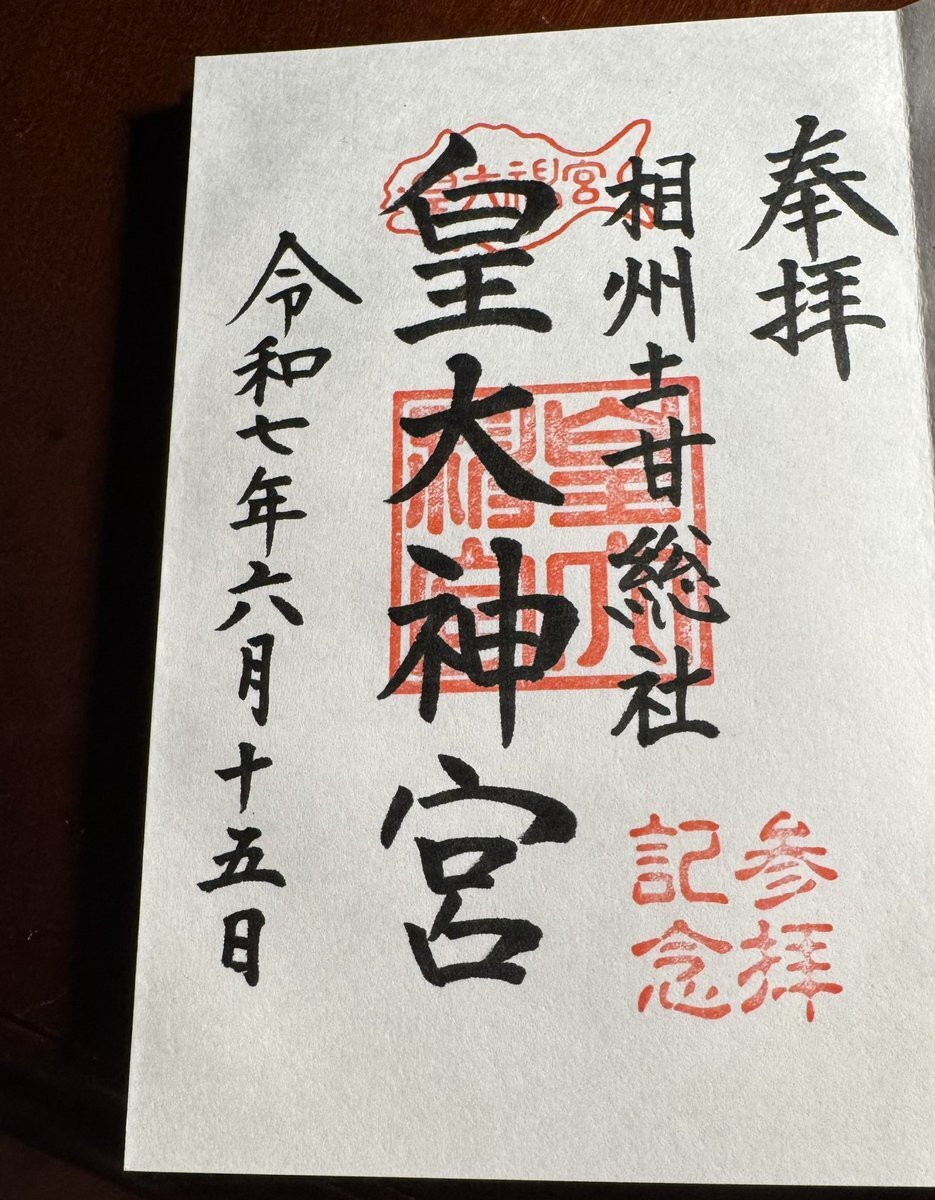 奉拝
相州土甘総社
皇大神宮
令和七年六月十五日
皇大神宮
皇大神宮
参拝
記念